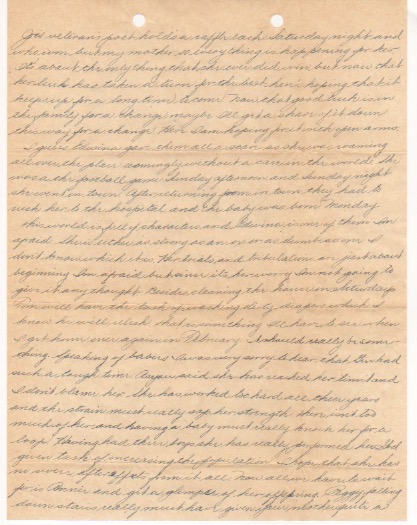 Joes veterans post holds a raffle each Saturday night and
who won but my mother so everything is happening for her
It's about the only thing that she ever did win but now that
her luck has taken a turn for the best here's hoping that it
keeps up for a long time to come. Now that good luck is in
the family for a change maybe I'll get a share of it down
this way for a change. Here I am hoping for it with open arms.
I guess Edwina gave them all a scare as she was roaming
all over the place seemingly without a care in the world. She
was at the football game Sunday afternoon and Sunday night
she went in town. After returning from in town they had to
rush her to the hospital and the baby was born Monday
this world is full of characters and Edwina is one of them I'm
afraid. She is either as strong as an ox or as dumb as one I
don't know which it is. Her trials and tribulations are just about
beginning I'm afraid but since it's her worry I'm not going to
give it any thought. Besides cleaning the house on Saturdays
Tim will have the task of washing dirty diapers which I
know he will relish that is something I'll have to see when
I get home once again in February. It should really be some-
thing. Speaking of babies I was very sorry to hear that had
such a tough time. said she has reached her limit and
I don't blame her. She has worked too hard all these years
and the strain must really sap her strength. She isn't too
much of her and having a baby must really knock her for a
loop. Having had three boys she has really performed her God
given task of increasing the population. I hope that she has
no more after effects from it all. Now all we have to wait
for is and get a glimpse of her offspring. Peggy falling
down stairs really must have given your mother quite a